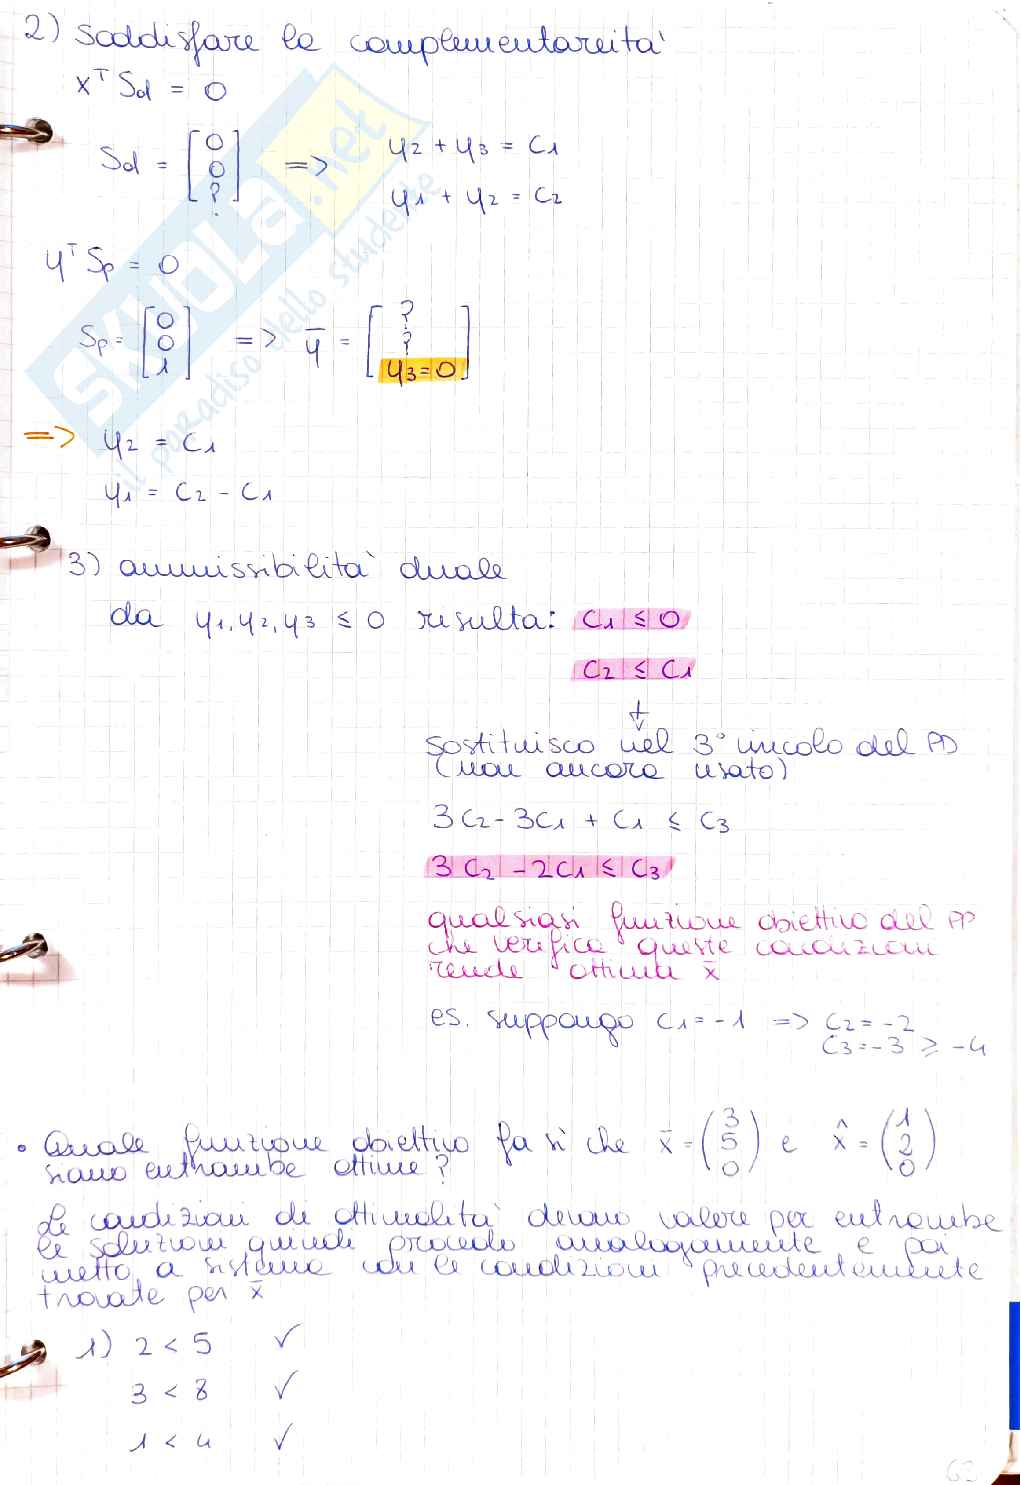 2) Soddisfare la complementareità
xᵀ Sd = 0
Sd = [0 0 ?] => y2 + y3 = c1
y1 + y2 = c2
yᵀ Sp = 0
Sp = [0 0 1] => ȳ = [? ? y3=0]
=> y2 = c1
y1 = c2 - c1
3) ammissibilità duale
da y1, y2, y3 ≤ 0 risulta: c1 ≤ 0
c2 ≤ c1
↓
sostituisco nel 3° vincolo del PD
(non ancora usato)
3c2 - 3c1 + c1 ≤ c3
3c2 - 2c1 ≤ c3
qualsiasi funzione obiettivo del PP
che verifica queste condizioni
rende ottima x̄
es. suppongo c1 = -1 => c2 = -2
c3 = -3 ≥ -4
• Quale funzione obiettivo fa sì che x̄ = (3 5 0) e x̂ = (1 2 0)
siano entrambe ottime?
Le condizioni di ottimalità devono valere per entrambe
le soluzioni quindi procedo analogamente e poi
metto a sistema con le condizioni precedentemente
trovate per x̄
1) 2 < 5 ✓
3 < 8 ✓
1 < 4 ✓
63
SKUOLA.net
il paradiso dello studente